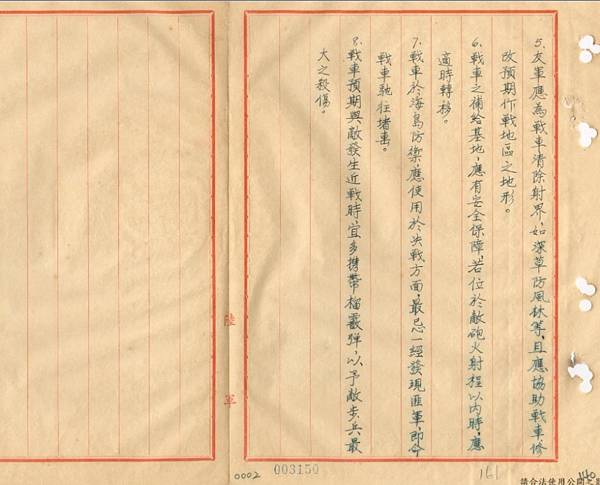 5.友軍應為戰車清除射界，如深草防風林等，且應協助戰車修
改預期作戰地區之地形。
6.戰車之補給基地，應有安全保障，若位於敵砲火射程以內時，應
適時轉移。
7.戰車於海島防禦，應使用於決戰方面，最忌一經發現匪軍，即命
戰車馳往堵擊。
8.戰車預期與敵發生近戰時，宜多攜帶榴霰彈，以予敵步兵最
大之殺傷。
陸軍
0002
003150
161
140
請合法使用公開之